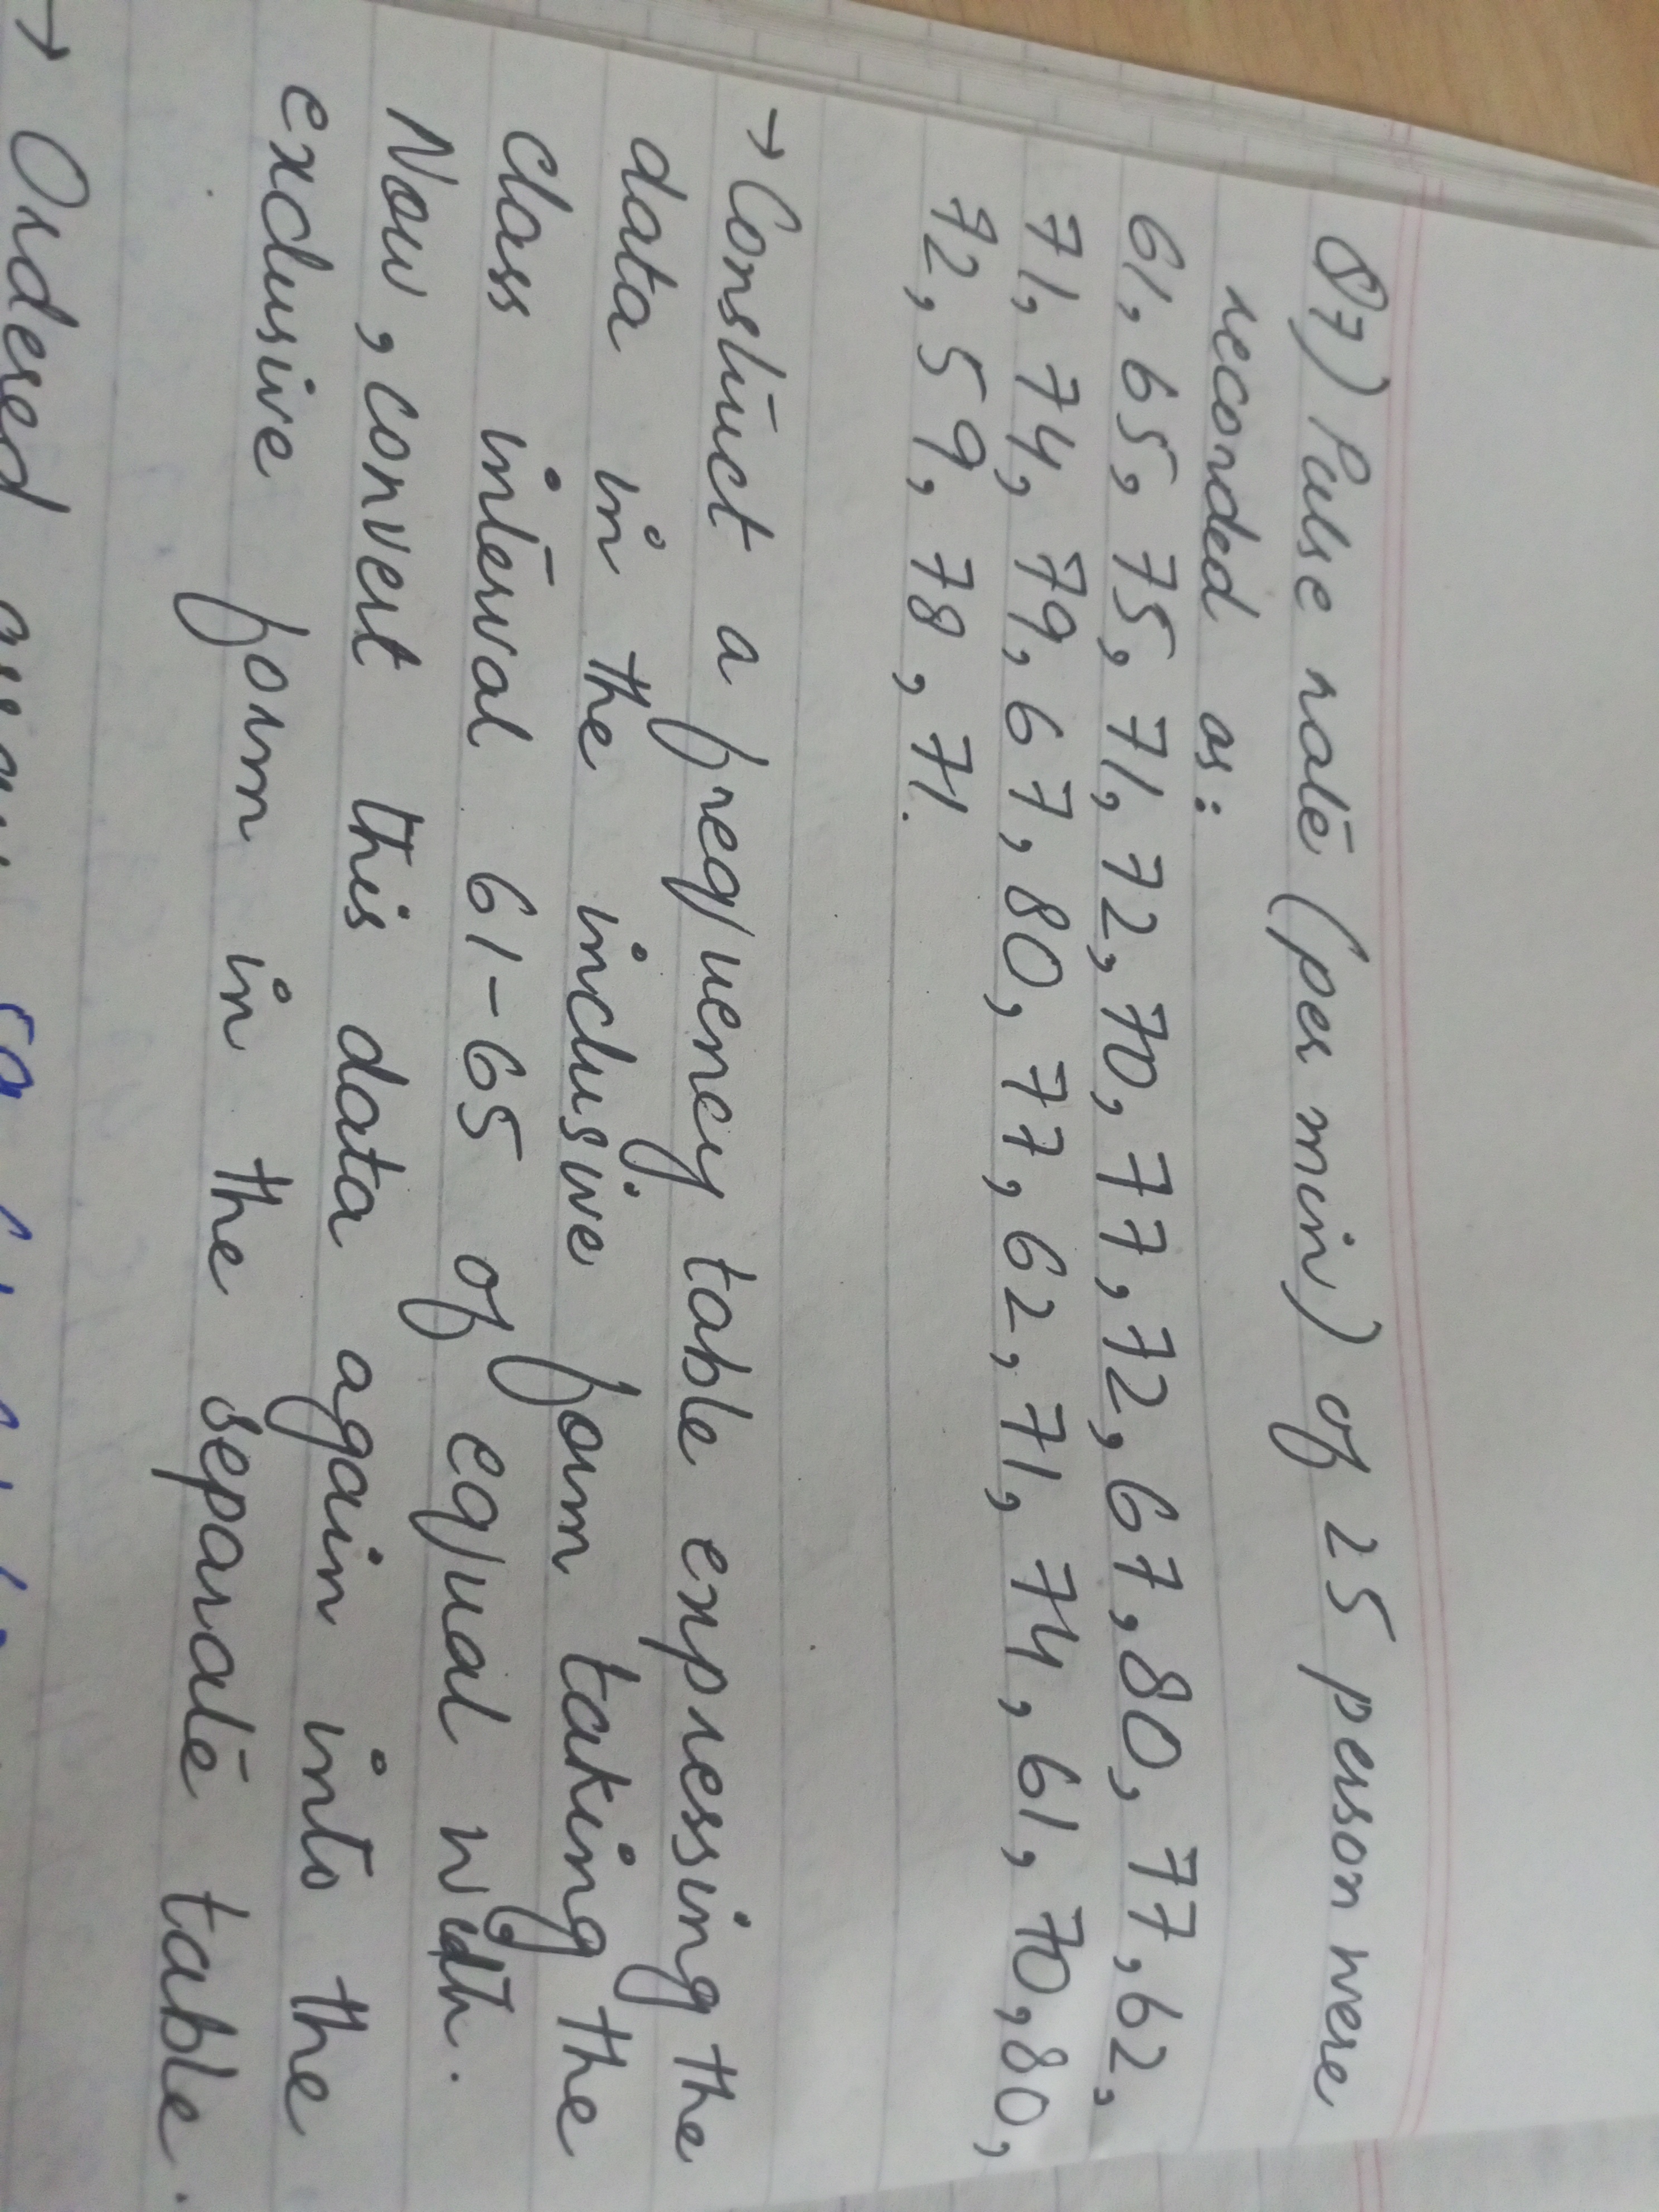 Q7) Pulse rate (per min) of 25 person were
recorded as:
61, 65, 75, 71, 72, 70, 77, 72, 67, 80, 77, 62,
71, 74, 79, 67, 80, 77, 62, 71, 74, 61, 70, 80,
72, 59, 78, 71.
→ Construct a frequency table expressing the
data in the inclusive form taking the
class interval 61-65 of equal width.
Now, convert this data again into the
exclusive form in the separate table.
→ Ordered